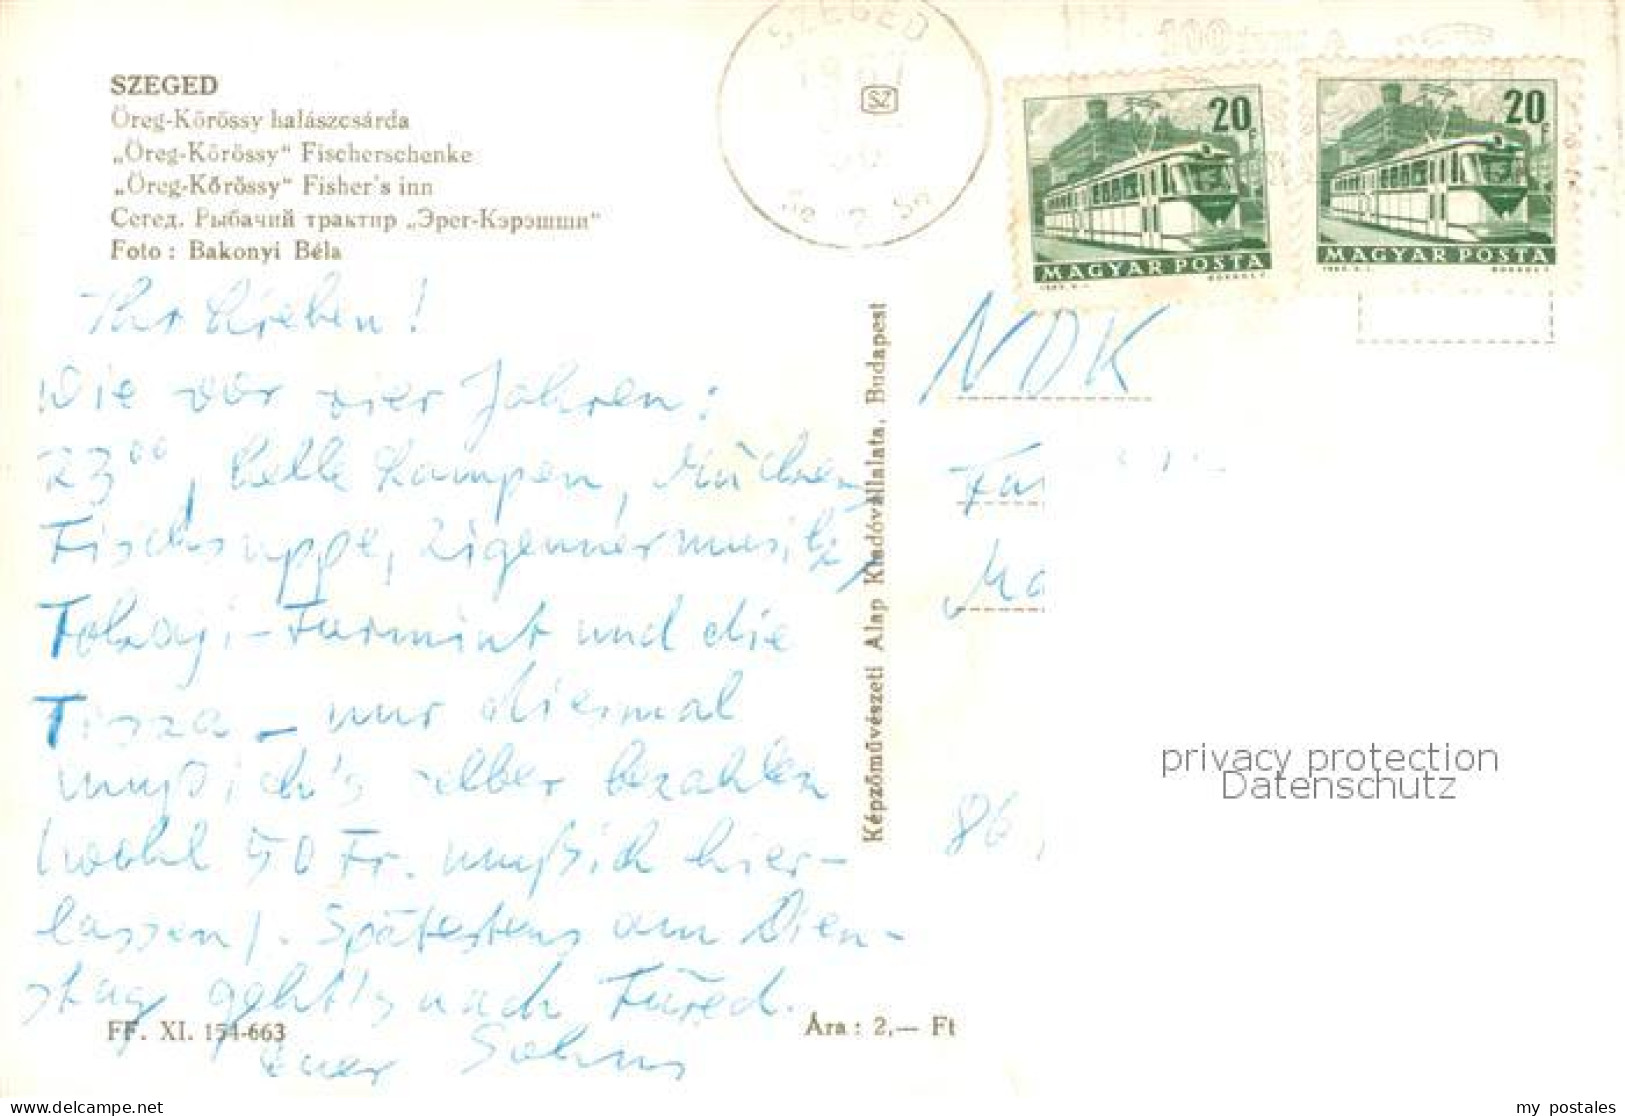 SZEGED
Öreg-Kőrössy halászcsárda
„Öreg-Kőrössy“ Fischerschenke
„Öreg-Kőrössy“ Fisher's inn
Сегед. Рыбачий трактир „Эрег-Кэрэшши“
Foto : Bakonyi Béla
Ihr Lieben!
Wie vor vier Jahren:
23⁰⁰, helle Lampen, Mücken,
Fischsuppe, Zigeunermusik,
Tokaji-Furmint und die
Tisza – nur diesmal
muß ich's selber bezahlen
(wohl 50 Fr. muß ich hier-
lassen). Spätestens am Dien-
stag geht's nach Füred.
Euer
FF. XI. 154-663
Ára : 2,— Ft
Képzőművészeti Alap Kiadóvállalata, Budapest
SZEGED
SZ
100
20 F
MAGYAR POSTA
20 F
MAGYAR POSTA
NDK
86
privacy protection
Datenschutz
my postales